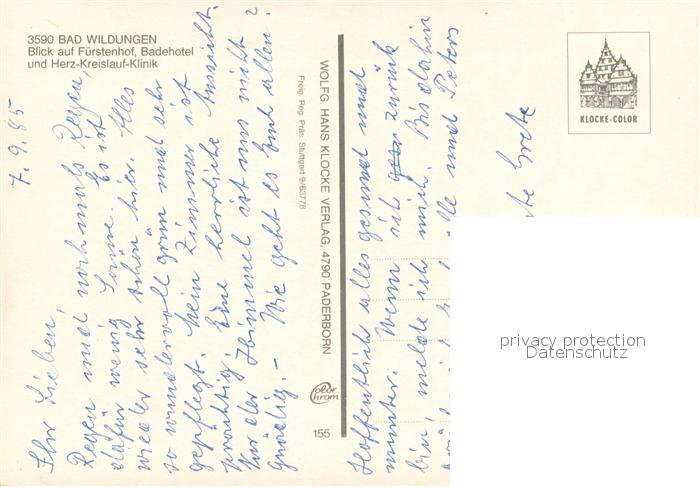 3590 BAD WILDUNGEN
Blick auf Fürstenhof, Badehotel
und Herz-Kreislauf-Klinik
7.9.85
Ihr Lieben,
Regen und nochmals Regen,
dafür wenig Sonne. Es ist
wieder sehr schön hier. Alles
so wundervoll grün und sehr
gepflegt. Mein Zimmer ist
prächtig. Eine herrliche Aussicht.
Nur der Himmel ist uns nicht
gnädig. – Wie geht es Euch allen?
Freig. Reg. Präs. Stuttgart 9/63778
WOLFG. HANS KLOCKE VERLAG, 4790 PADERBORN
color chrom
155
Hoffentlich alles gesund und
munter. Wenn ich zurück
bin, melde ich mich. Bis dahin
alle und Peters
Grete
KLOCKE-COLOR
privacy protection
Datenschutz